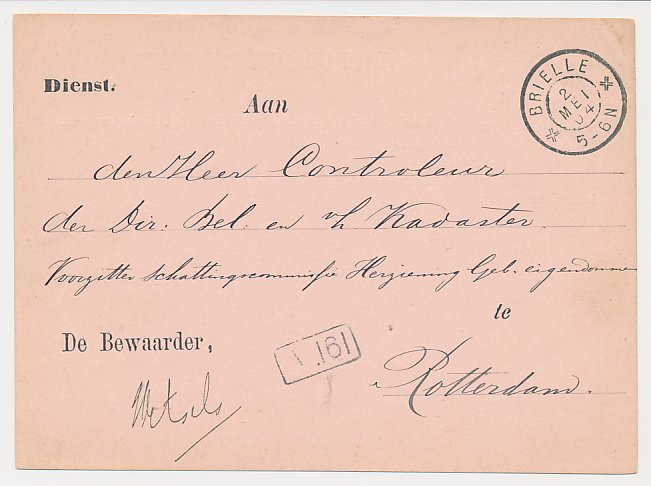 Dienst.
BRIELLE
2
MEI
04
5-6N
Aan
den Heer Controleur
der Dir: Bel: en v/h Kadaster
Voorzitter Schattingscommissie Herziening Geb. eigendommen
te
De Bewaarder,
161
Rotterdam.